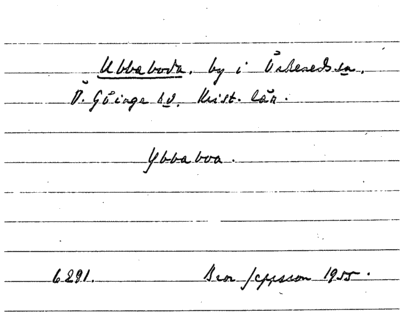 Ubbaboda, by i Örkeneds sn,
Ö. Göinge hd, Krist. län.
Ybbaboa.
6291. Jeppsson 1955.